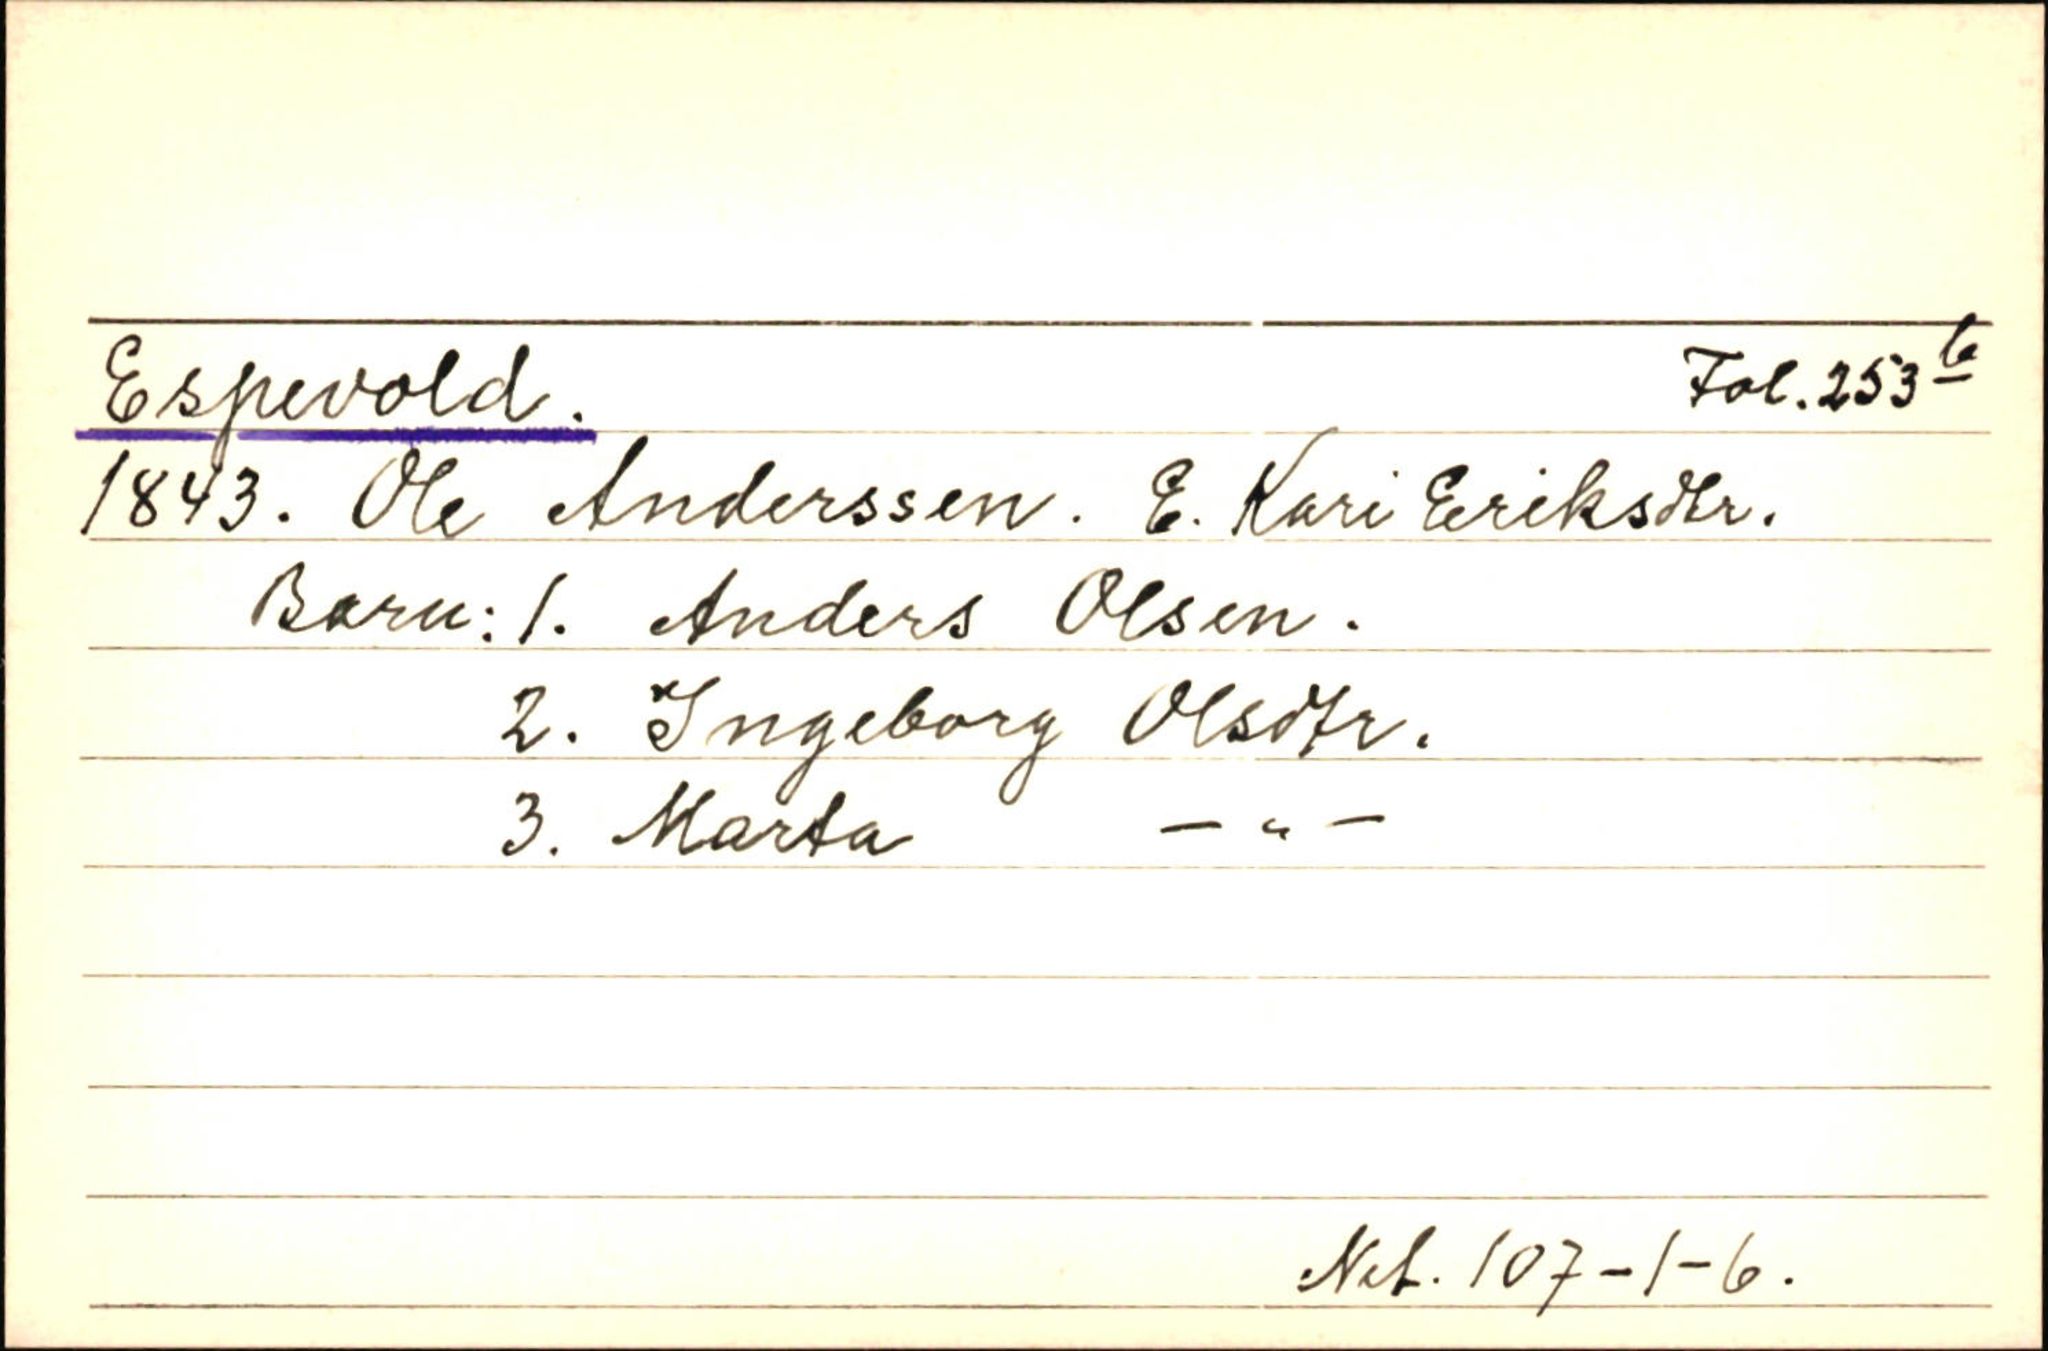 Espevold. Fol. 253 b
1843. Ole Anderssen. E. Kari Eriksdtr.
Barn: 1. Anders Olsen.
2. Ingeborg Olsdtr.
3. Marta — " —
Net. 107-1-6.